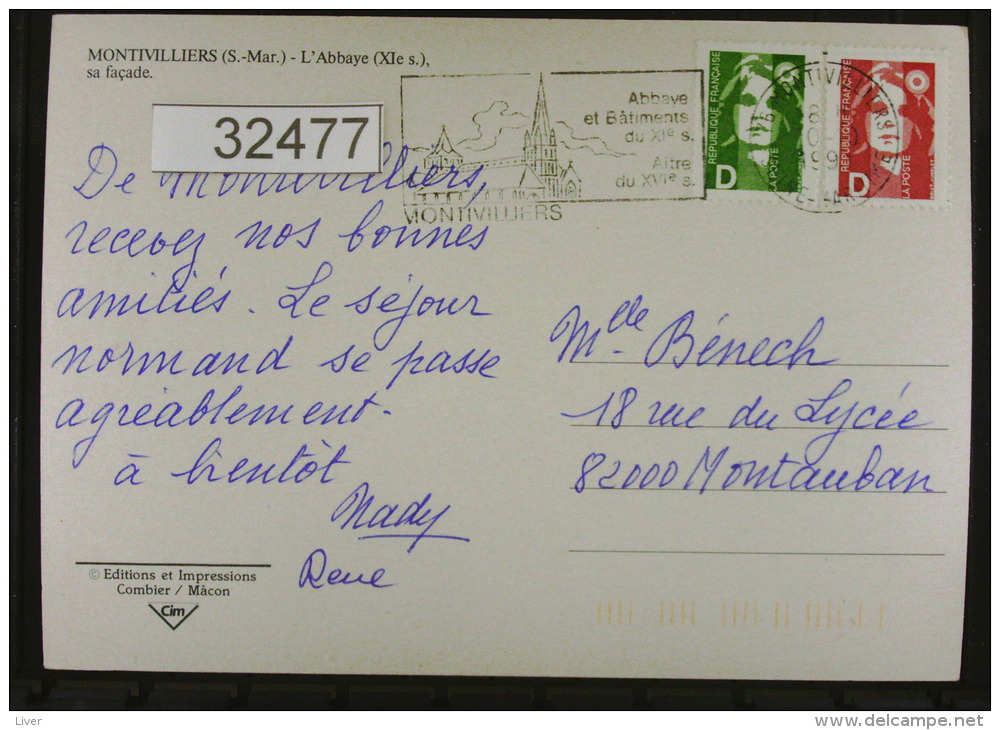 MONTIVILLIERS (S.-Mar.) - L'Abbaye (XIe s.),
sa façade.
32477
Abbaye
et Bâtiments
du XIe s.
Aître
du XVIe s.
MONTIVILLIERS
REPUBLIQUE FRANÇAISE
LA POSTE
D
REPUBLIQUE FRANÇAISE
LA POSTE
D
76 MONTIVILLIERS
De Montivilliers,
recevez nos bonnes
amitiés. Le séjour
normand se passe
agréablement.
à bientôt
Nady
Rene
Mlle Bénech
18 rue du Lycée
82000 Montauban
© Editions et Impressions
Combier / Mâcon
Cim
Liver
delcampe.net